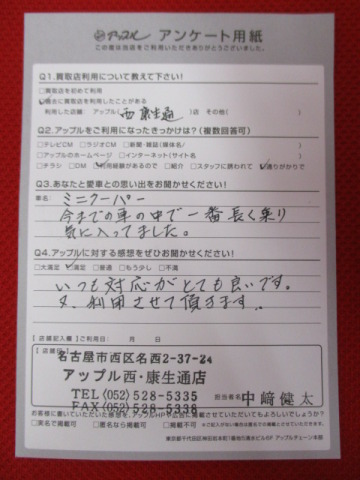 アップル アンケート用紙
この度は当店をご利用いただきありがとうございました。
Q1.買取店利用について教えて下さい!
□買取店を初めて利用
☑過去に買取店を利用したことがある
利用した店舗: アップル( 西 康生通 )店 その他( )
Q2.アップルをご利用になったきっかけは?(複数回答可)
□テレビCM □ラジオCM □新聞・雑誌(媒体名/ )
□アップルのホームページ □インターネット(サイト名 )
□チラシ □DM ☑利用経験があるので □紹介 □スタッフに誘われて ☑通りがかりで
Q3.あなたと愛車との思い出をお聞かせください!
車名: ミニクーパー
今までの車の中で一番長く乗り
気に入ってました。
Q4.アップルに対する感想をぜひお聞かせください!
□大満足 ☑満足 □普通 □もう少し □不満
いつも対応がとても良いです。
又、利用させて頂きます。
【店舗記入欄】ご利用日: 月 日
名古屋市西区名西2-37-24
アップル西・康生通店
TEL(052)528-5335
FAX(052)528-5338
担当者名 中﨑健太
お客様に書いていただいた感想を、アップルHPや広告に掲載させていただいてもよろしいでしょうか?
□実名で掲載可 □匿名なら掲載可 □掲載不可